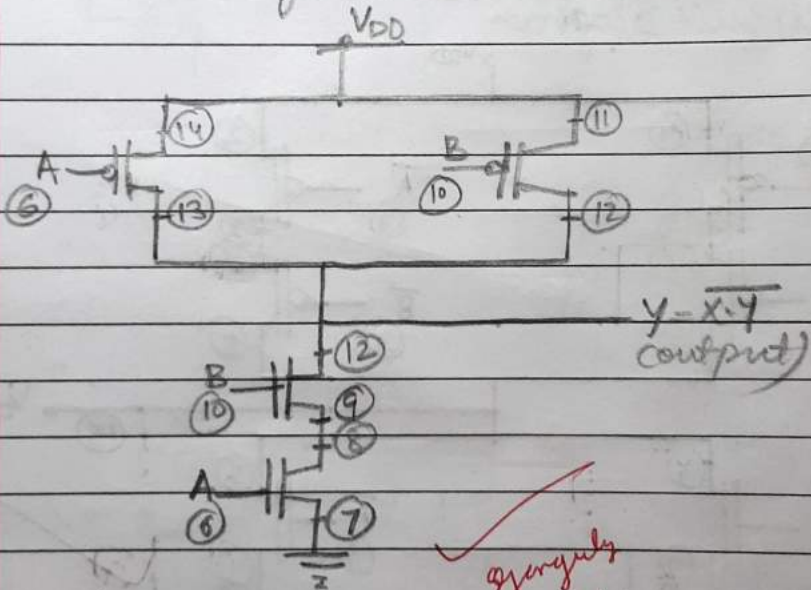 VDD
14
11
A
B
6
10
13
12
Y = \overline{X.Y}
(output)
12
B
10
9
8
A
6
7